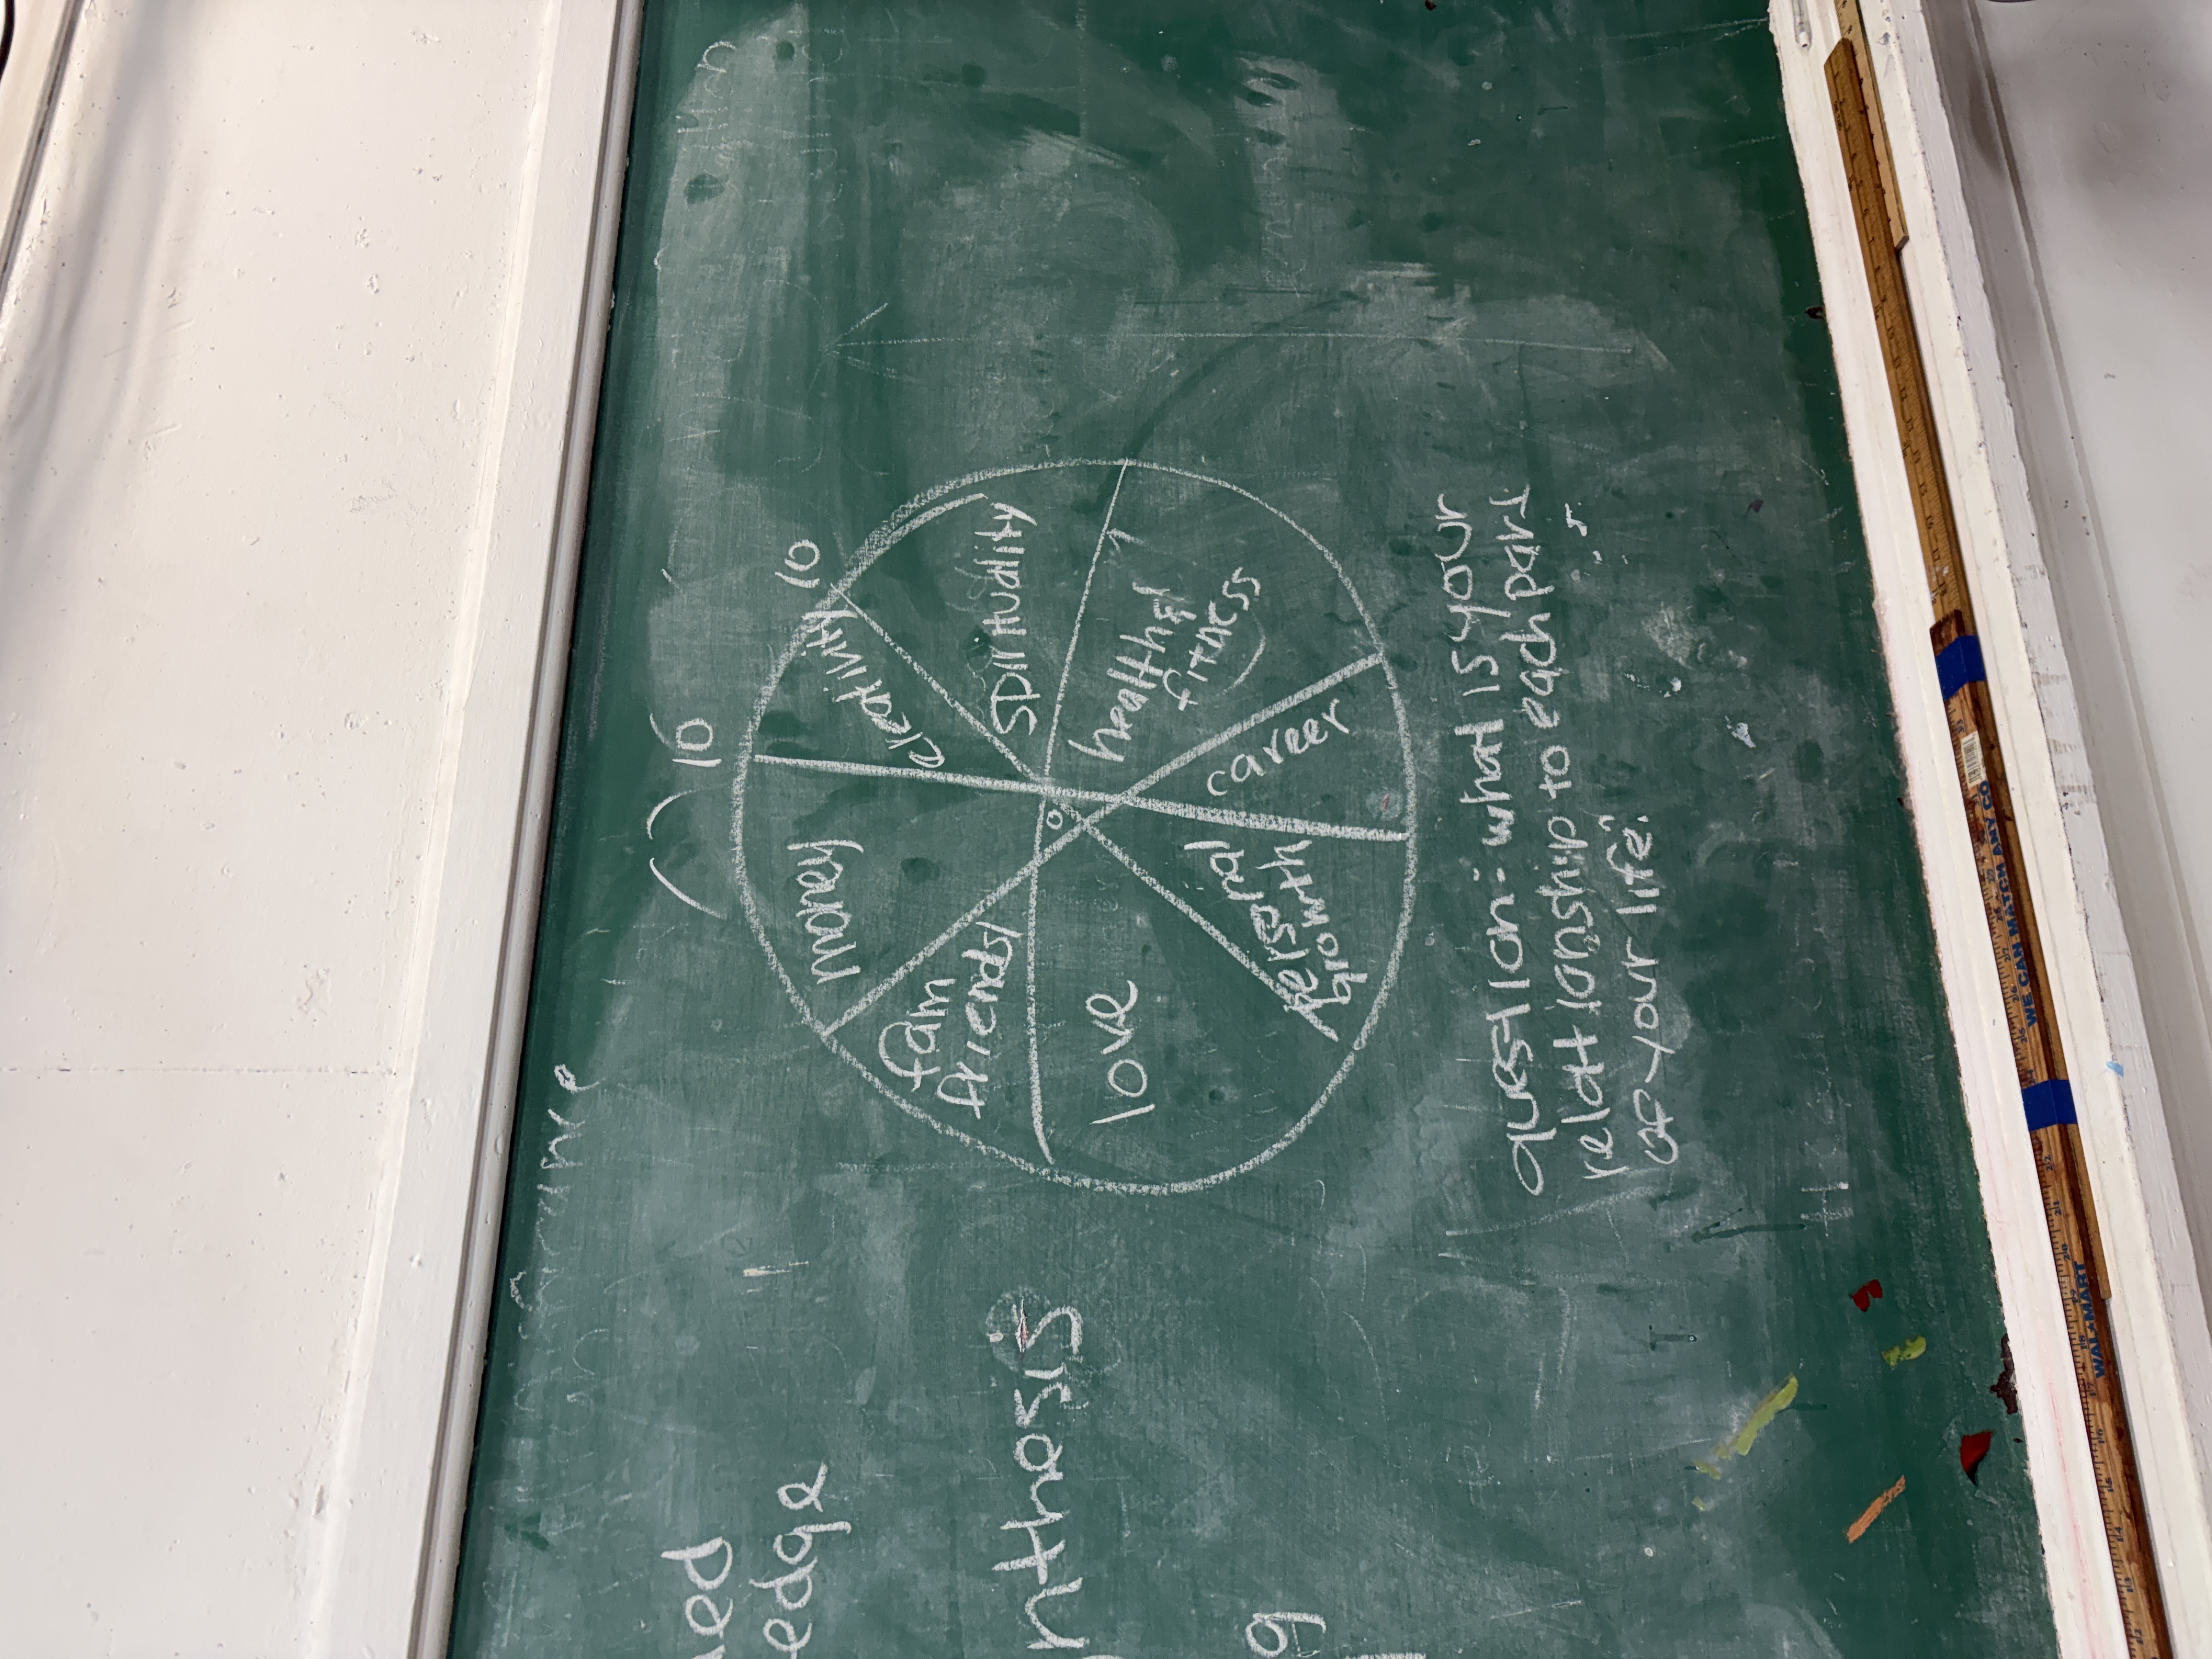 10
10
money
creativity
spirituality
fam
friends
0
love
health &
fitness
personal
growth
career
question: what is your
relationship to each part
of your life?
ed
edge
nthesis
g
WE CAN MATCH ANY CO
WAL★MART